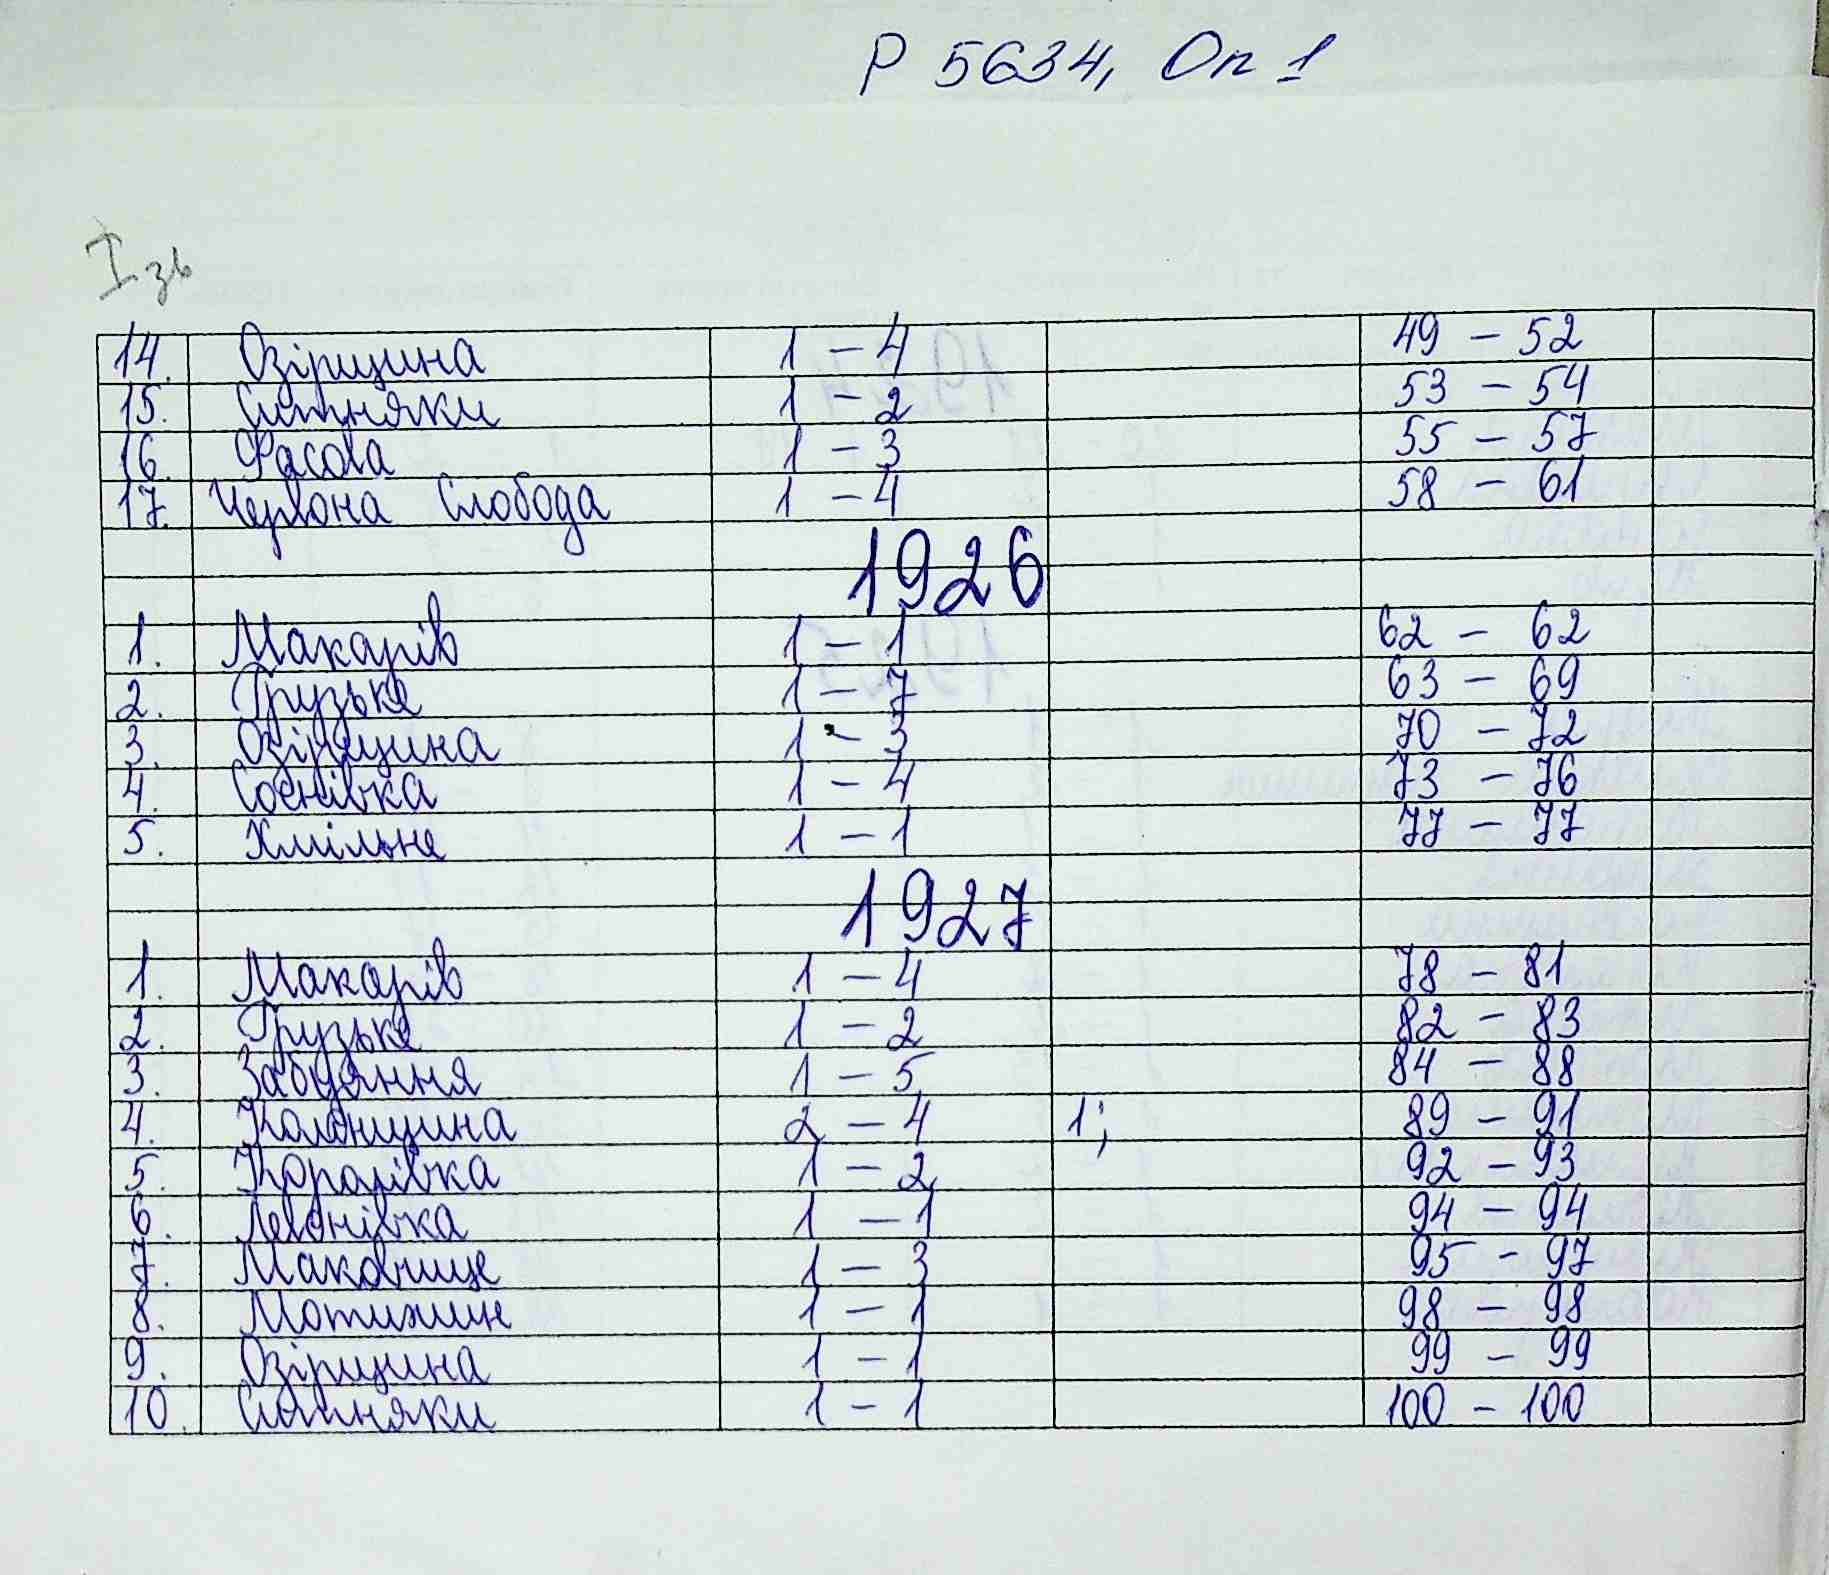 Р 5634, Оп 1
І зв
14. Озірщина 1 – 4 49 – 52
15. Ситняки 1 – 2 53 – 54
16. Фасова 1 – 3 55 – 57
17. Червона Слобода 1 – 4 58 – 61
1926
1. Макарів 1 – 1 62 – 62
2. Грузьке 1 – 7 63 – 69
3. Озірщина 1 – 3 70 – 72
4. Соснівка 1 – 4 73 – 76
5. Хмільне 1 – 1 77 – 77
1927
1. Макарів 1 – 4 78 – 81
2. Грузьке 1 – 2 82 – 83
3. Забуяння 1 – 5 84 – 88
4. Колонщина 2 – 4 1; 89 – 91
5. Королівка 1 – 2 92 – 93
6. Леонівка 1 – 1 94 – 94
7. Маковище 1 – 3 95 – 97
8. Мотижин 1 – 1 98 – 98
9. Озірщина 1 – 1 99 – 99
10. Ситняки 1 – 1 100 – 100